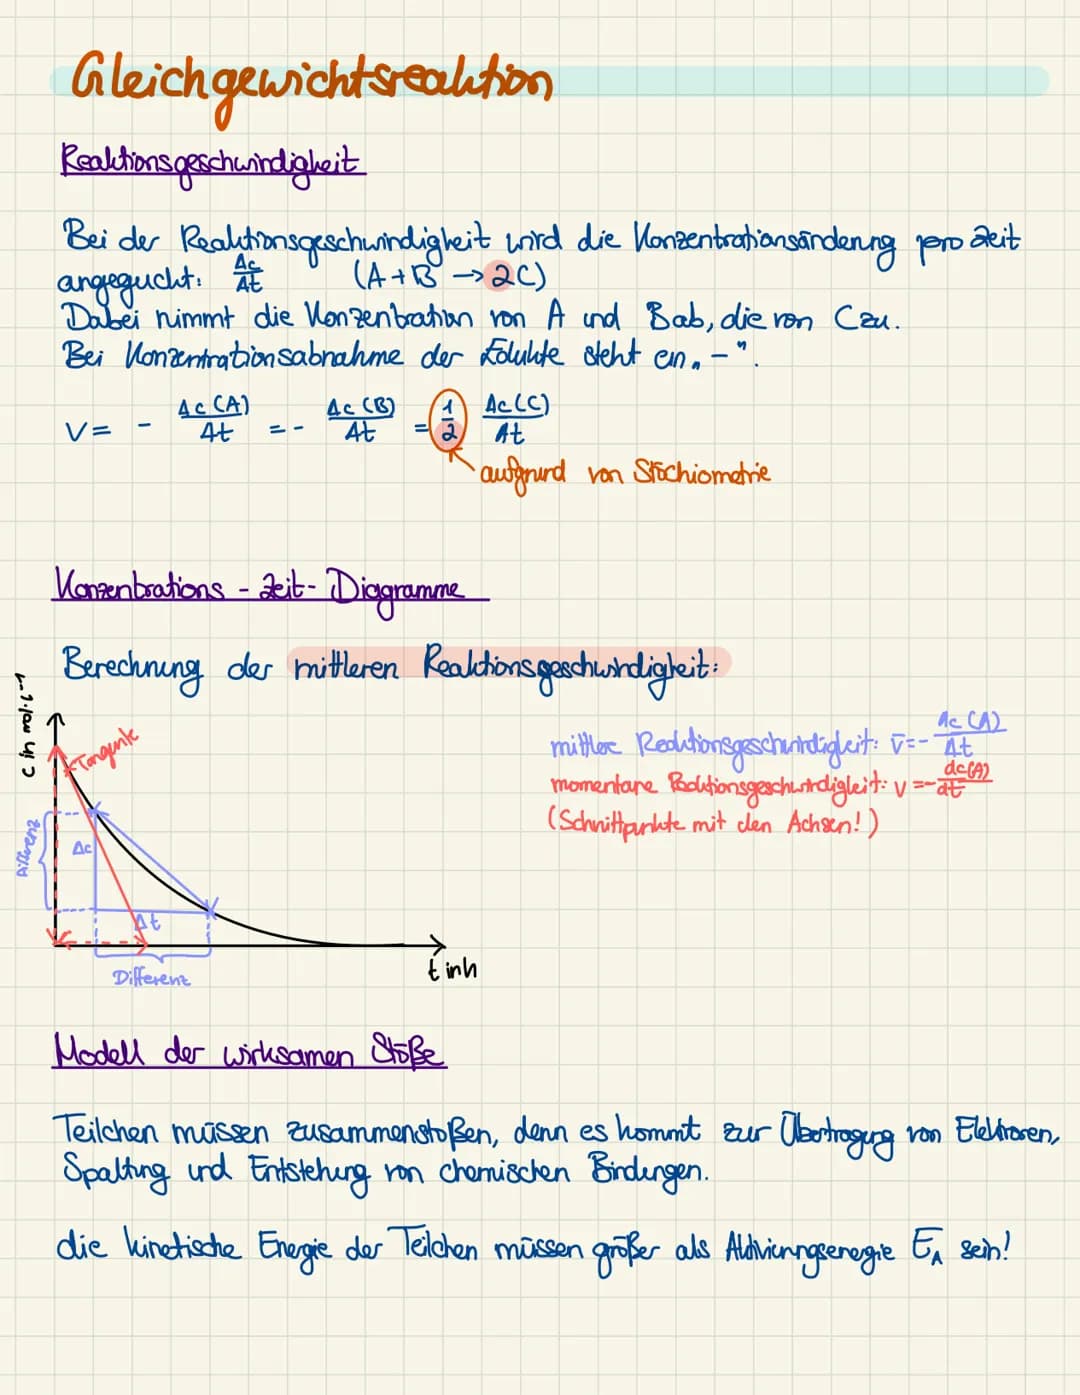 Gleichgewichtsreaktion
Reaktionsgeschwindigkeit
Bei der Reaktionsgeschwindigkeit wird die Konzentrationsänderung pro Zeit
angeguckt: Δc/Δt (A + B → 2C)
Dabei nimmt die Konzentration von A und B ab, die von C zu.
Bei Konzentrationsabnahme der Edukte steht ein „-".
V = - Δc(A)/Δt = - Δc(B)/Δt = 1/2 Δc(C)/Δt
aufgrund von Stöchiometrie
Konzentrations - Zeit - Diagramme
Berechnung der mittleren Reaktionsgeschwindigkeit:
c in mol·l⁻¹
Tangente
mittlere Reaktionsgeschwindigkeit: v̄ = - Δc(A)/Δt
momentane Reaktionsgeschwindigkeit: v = - dc(A)/dt
(Schnittpunkte mit den Achsen!)
Differenz
Δc
Δt
Differenz
t in h
Modell der wirksamen Stöße
Teilchen müssen zusammenstoßen, denn es kommt zur Übertragung von Elektronen,
Spaltung und Entstehung von chemischen Bindungen.
die kinetische Energie der Teilchen müssen größer als Aktivierungsenergie E_A sein!